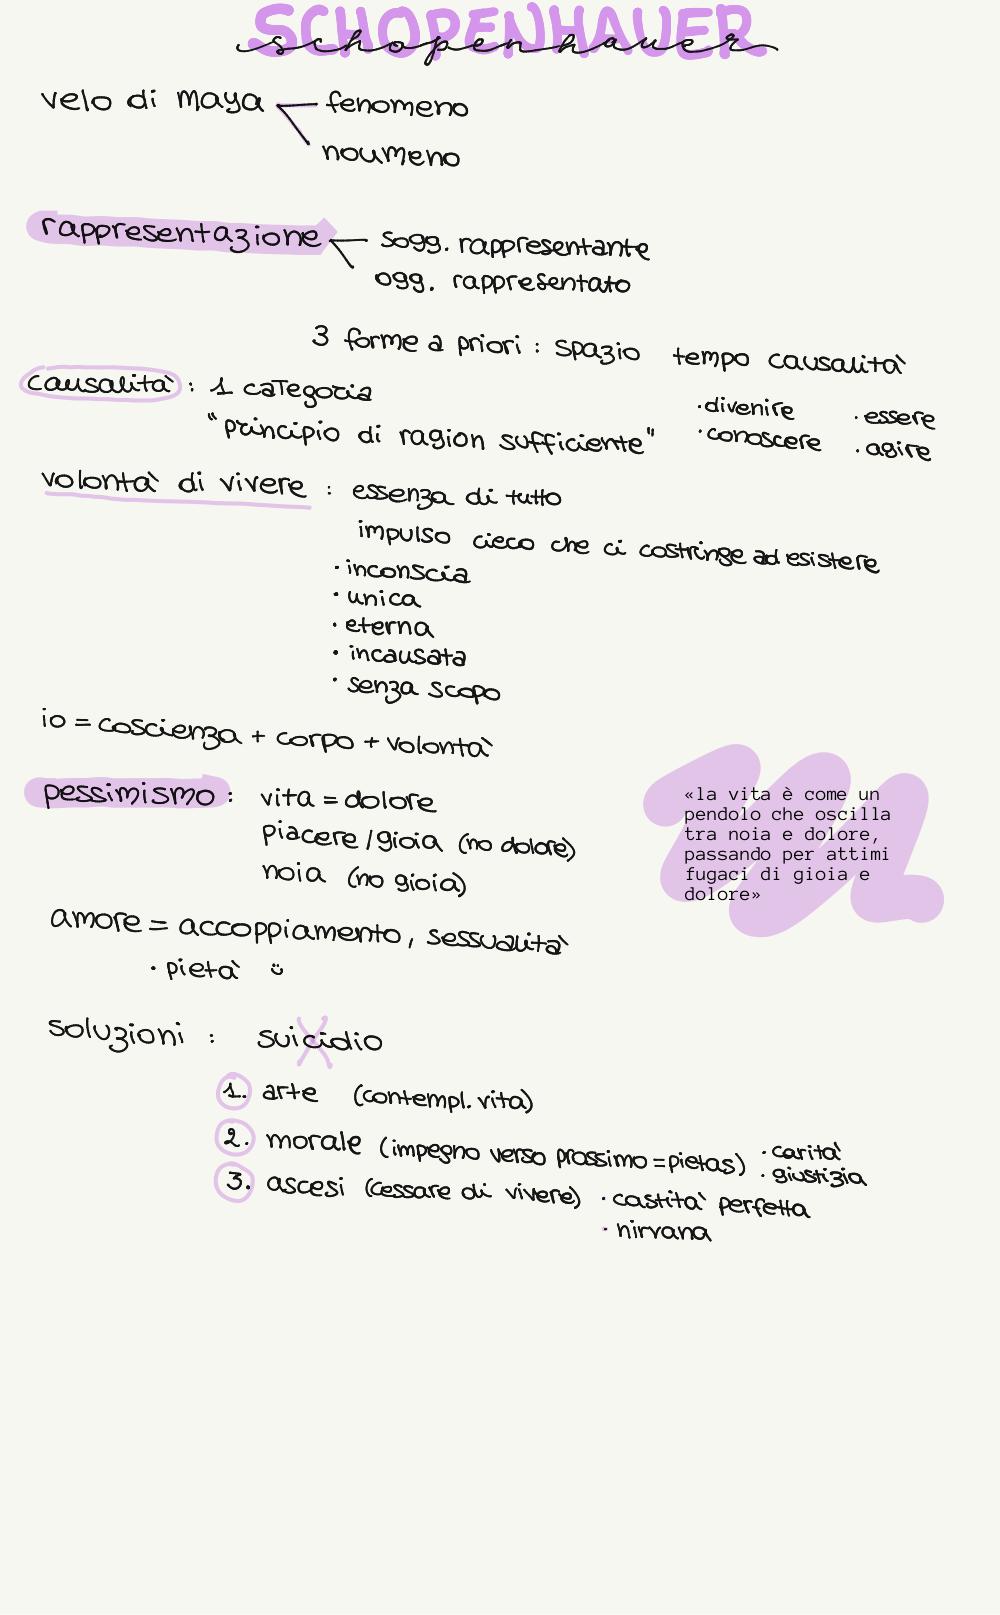 SCHOPENHAUER
schopenhauer
velo di maya
fenomeno
noumeno
rappresentazione
sogg. rappresentante
ogg. rappresentato
3 forme a priori : spazio tempo causalità
causalità : 1 categoria
"principio di ragion sufficiente"
· divenire · essere
· conoscere · agire
volontà di vivere : essenza di tutto
impulso cieco che ci costringe ad esistere
· inconscia
· unica
· eterna
· incausata
· senza scopo
io = coscienza + corpo + volontà
pessimismo : vita = dolore
piacere / gioia (no dolore)
noia (no gioia)
«la vita è come un
pendolo che oscilla
tra noia e dolore,
passando per attimi
fugaci di gioia e
dolore»
amore = accoppiamento, sessualità
· pietà
soluzioni : suicidio
1. arte (contempl. vita)
2. morale (impegno verso prossimo = pietas) · carità
· giustizia
3. ascesi (cessare di vivere) · castità perfetta
· nirvana